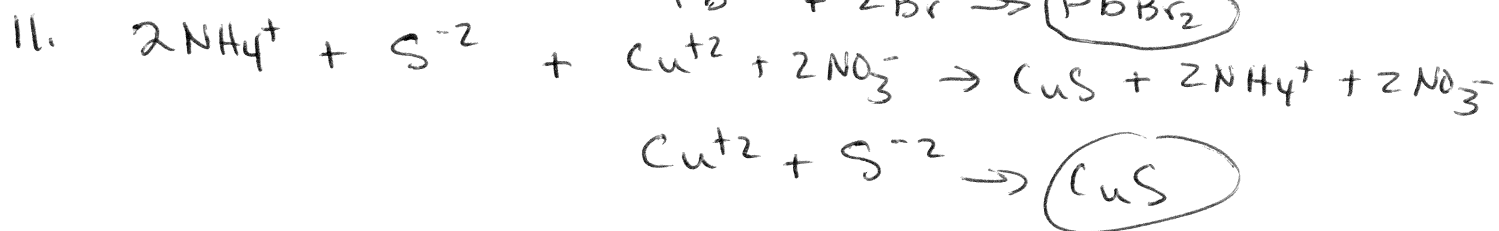 + 2Br → PbBr₂
11. 2NH₄⁺ + S⁻² + Cu⁺² + 2NO₃⁻ → CuS + 2NH₄⁺ + 2NO₃⁻
Cu⁺² + S⁻² → CuS